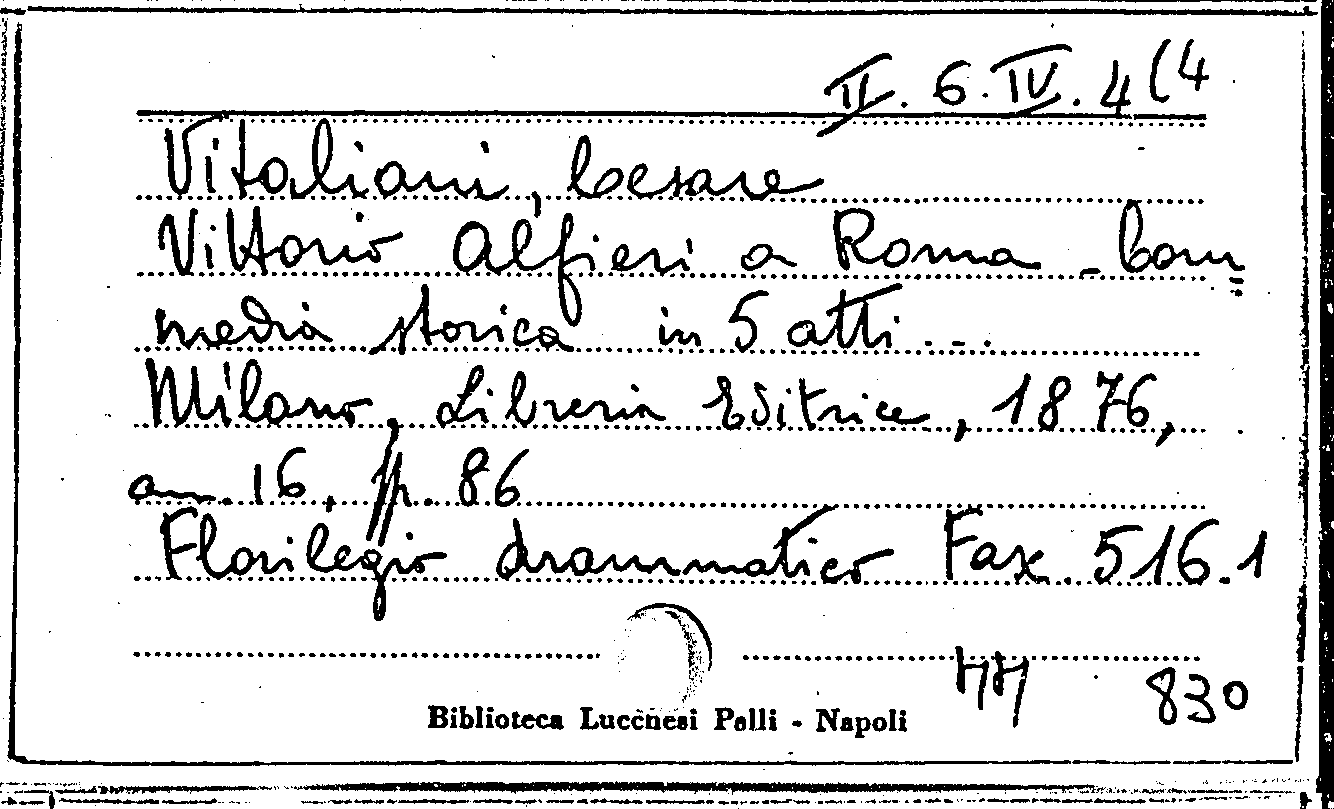 II. 6. IV. 4 (4
Vitaliani, Cesare
Vittorio Alfieri a Roma - Com=
media storica in 5 atti...
Milano, Libreria Editrice, 1876,
cm. 16, pp. 86
Florilegio drammatico Fasc. 516.1
830
Biblioteca Lucchesi Palli - Napoli